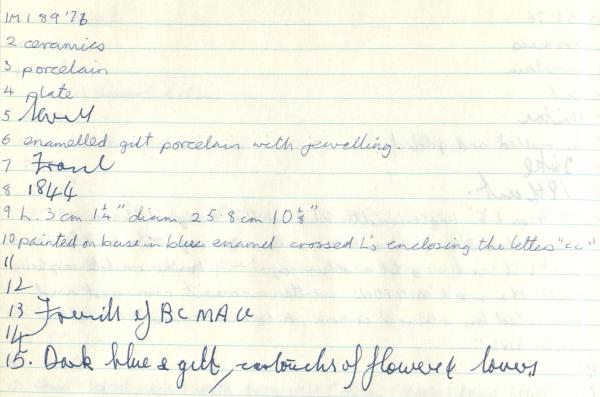 1 M189'76
2 ceramics
3 porcelain
4 plate
5
6 enamelled gilt porcelain with jewelling.
7
8 1844
9 h. 3 cm 1¼" diam. 25.8 cm 10⅛"
10 painted on base in blue enamel crossed L's enclosing the letters "cc"
11
12
13 of BCMAG
14
15. Dark blue & gilt, cartouches of flowers & lovers